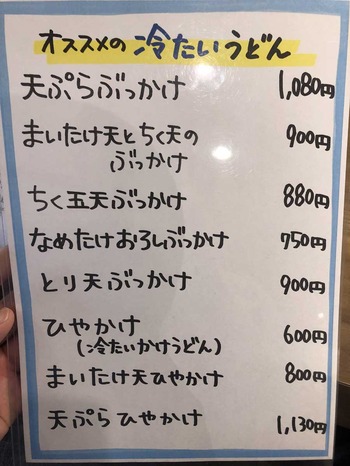 オススメの冷たいうどん
天ぷらぶっかけ 1,080円
まいたけ天とちく天の 900円
ぶっかけ
ちく玉天ぶっかけ 880円
なめたけおろしぶっかけ 750円
とり天ぶっかけ 900円
ひやかけ 600円
(冷たいかけうどん)
まいたけ天ひやかけ 800円
天ぷらひやかけ 1,130円